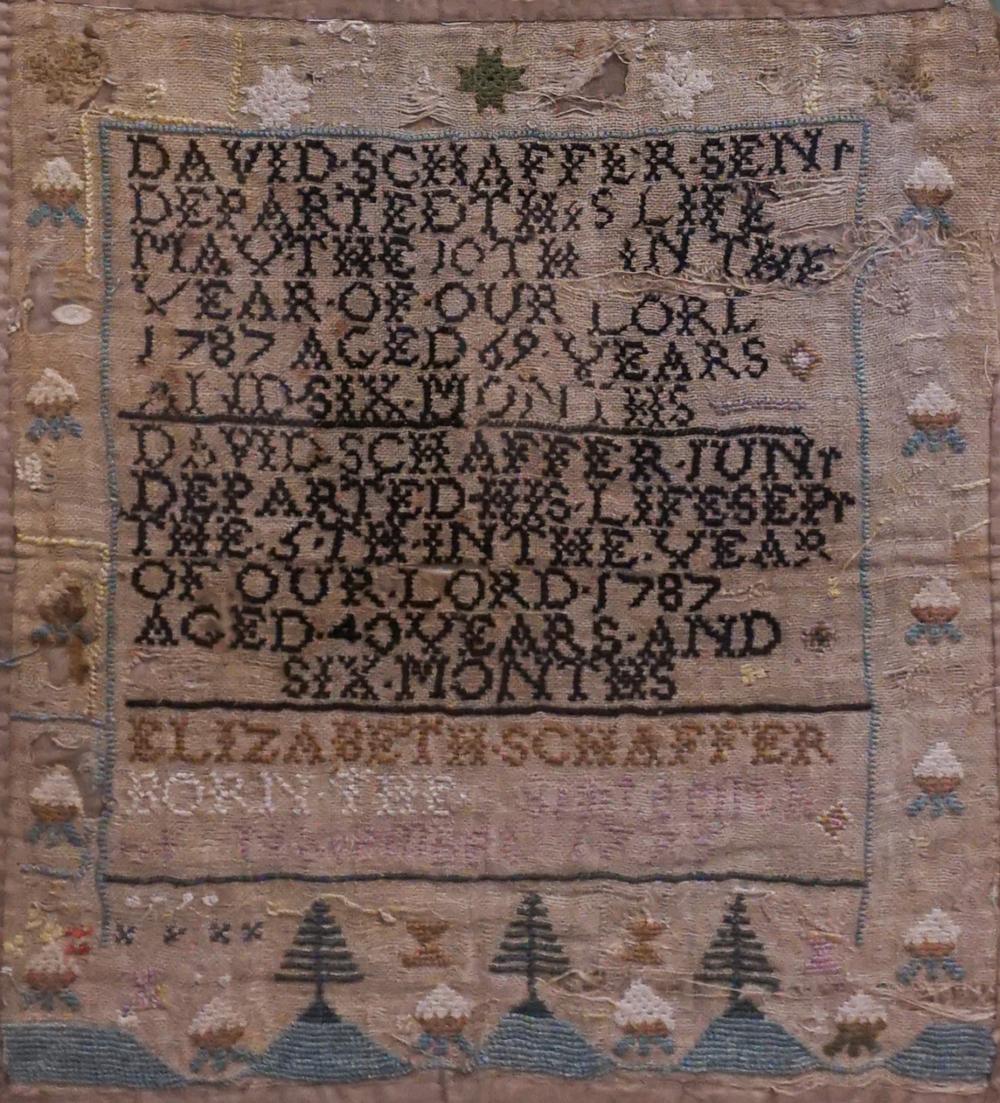 DAVID·SCHAFFER·SENr
DEPARTED THIS LIFE
MAY·THE 10TH IN THE
YEAR·OF·OUR LORD
1787 AGED 69·YEARS
AND SIX·MONTHS
DAVID·SCHAFFER·JUNr
DEPARTED·HIS·LIFE SEPr
THE·5·TH·IN THE·YEAR
OF OUR·LORD·1787
AGED·40 YEARS·AND
SIX·MONTHS
ELIZABETH·SCHAFFER
BORN·THE